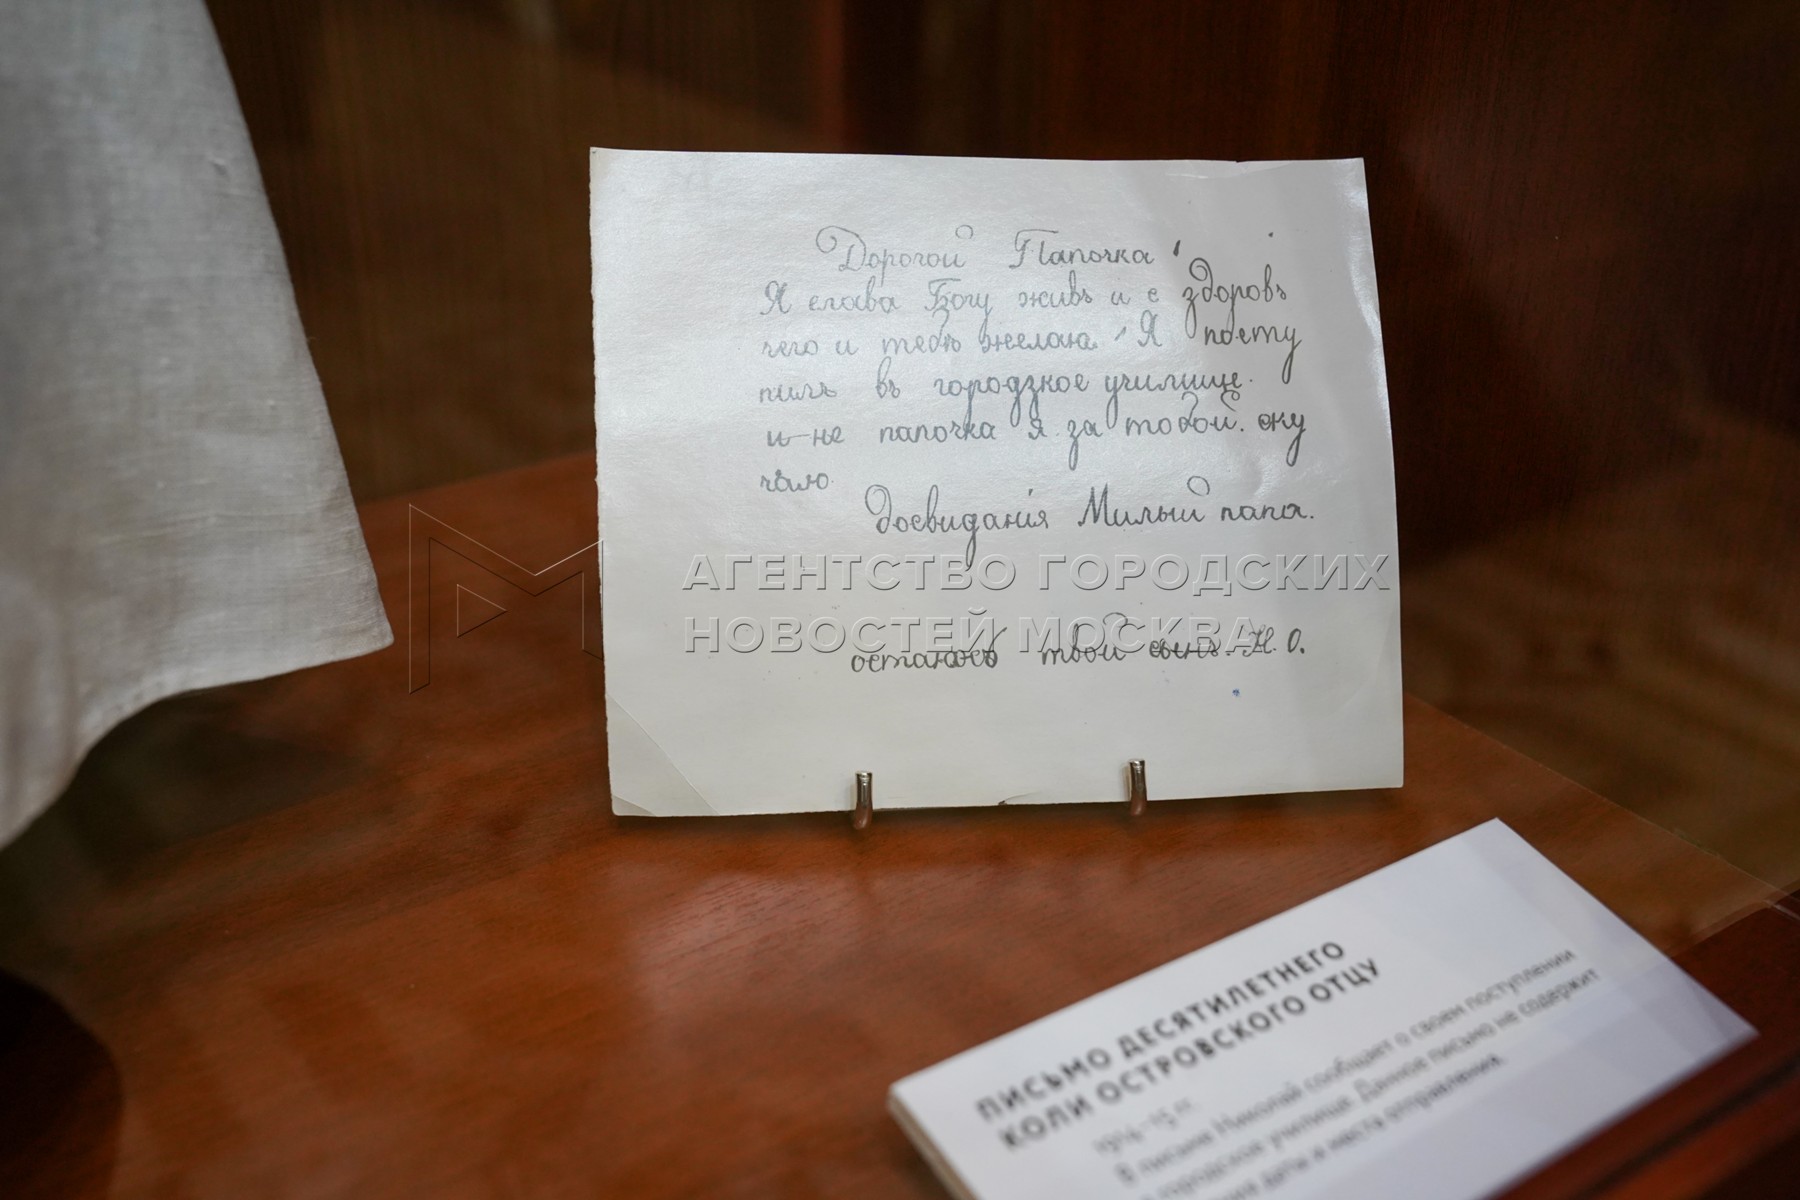 Дорогой Папочка!
Я слава Богу живъ и с здоровъ
чего и тебѣ желаю. Я посту
пилъ въ городзкое училище.
и не папочка я за тобой. ску
чаю.
Досвиданія Милый папа.
остаюсь твой сынъ. Н. О.
АГЕНТСТВО ГОРОДСКИХ
НОВОСТЕЙ МОСКВА
ПИСЬМО ДЕСЯТИЛЕТНЕГО
КОЛИ ОСТРОВСКОГО ОТЦУ
1914–15 гг.
В письме Николай сообщает о своем поступлении
в городское училище. Данное письмо не содержит
даты и места отправления.